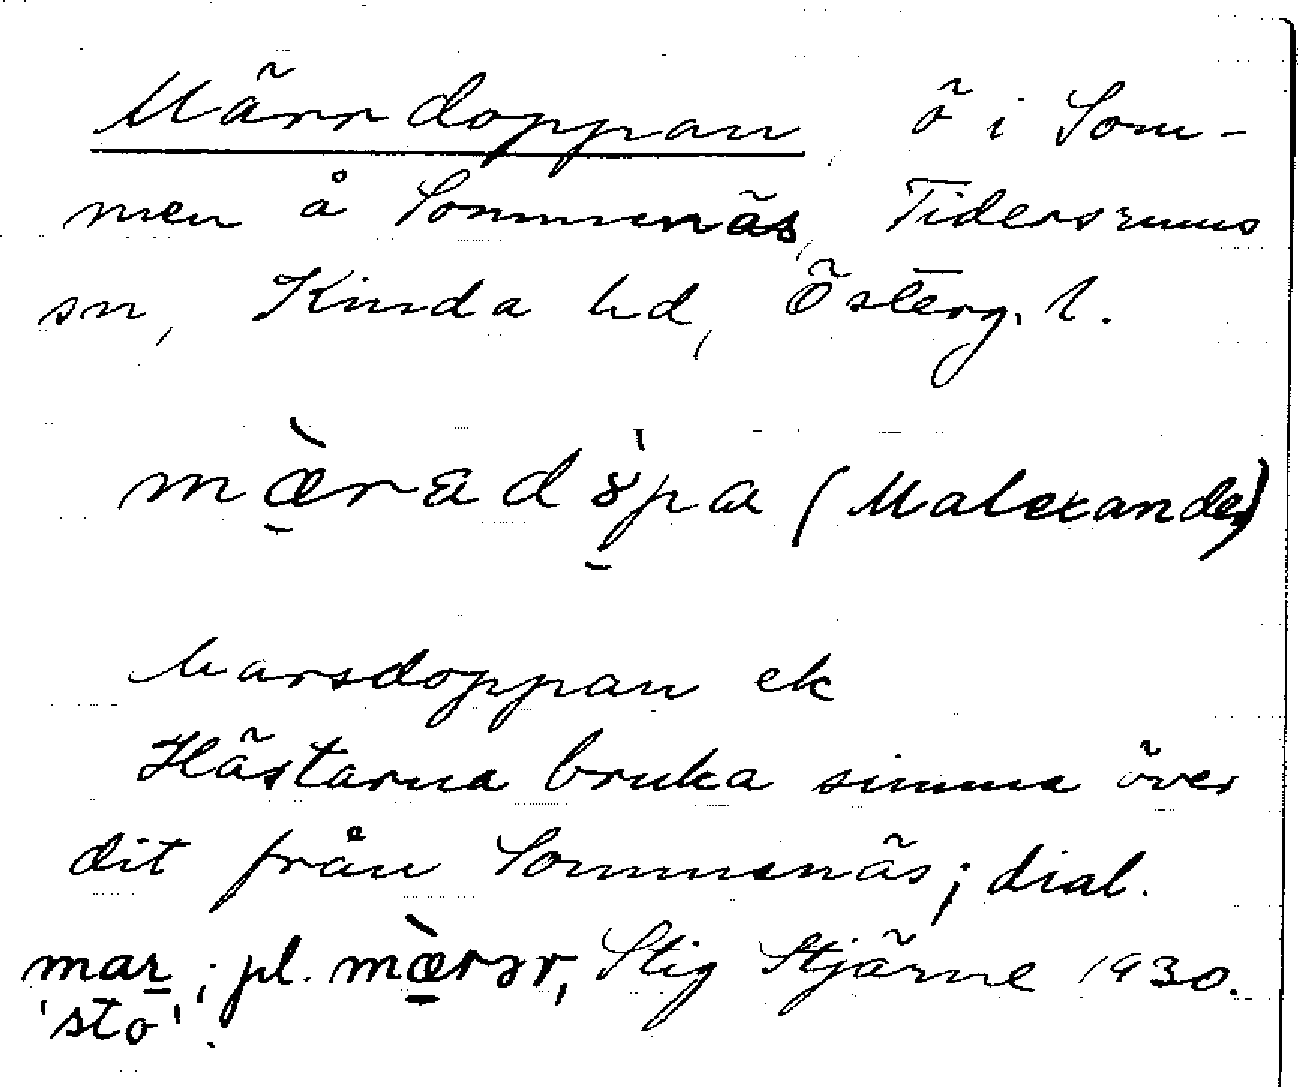 Märrdoppan, ö i Som-
men å Sommenäs, Tidersrums
sn, Kinda hd, Österg. l.
mæ̀radɔ̀pa (Malexander)
barsdoppan ek
Hästarna bruka simma över
dit från Sommenäs; dial.
mar; pl. mæ̀rər, Stig Stjärne 1930.
'sto'.